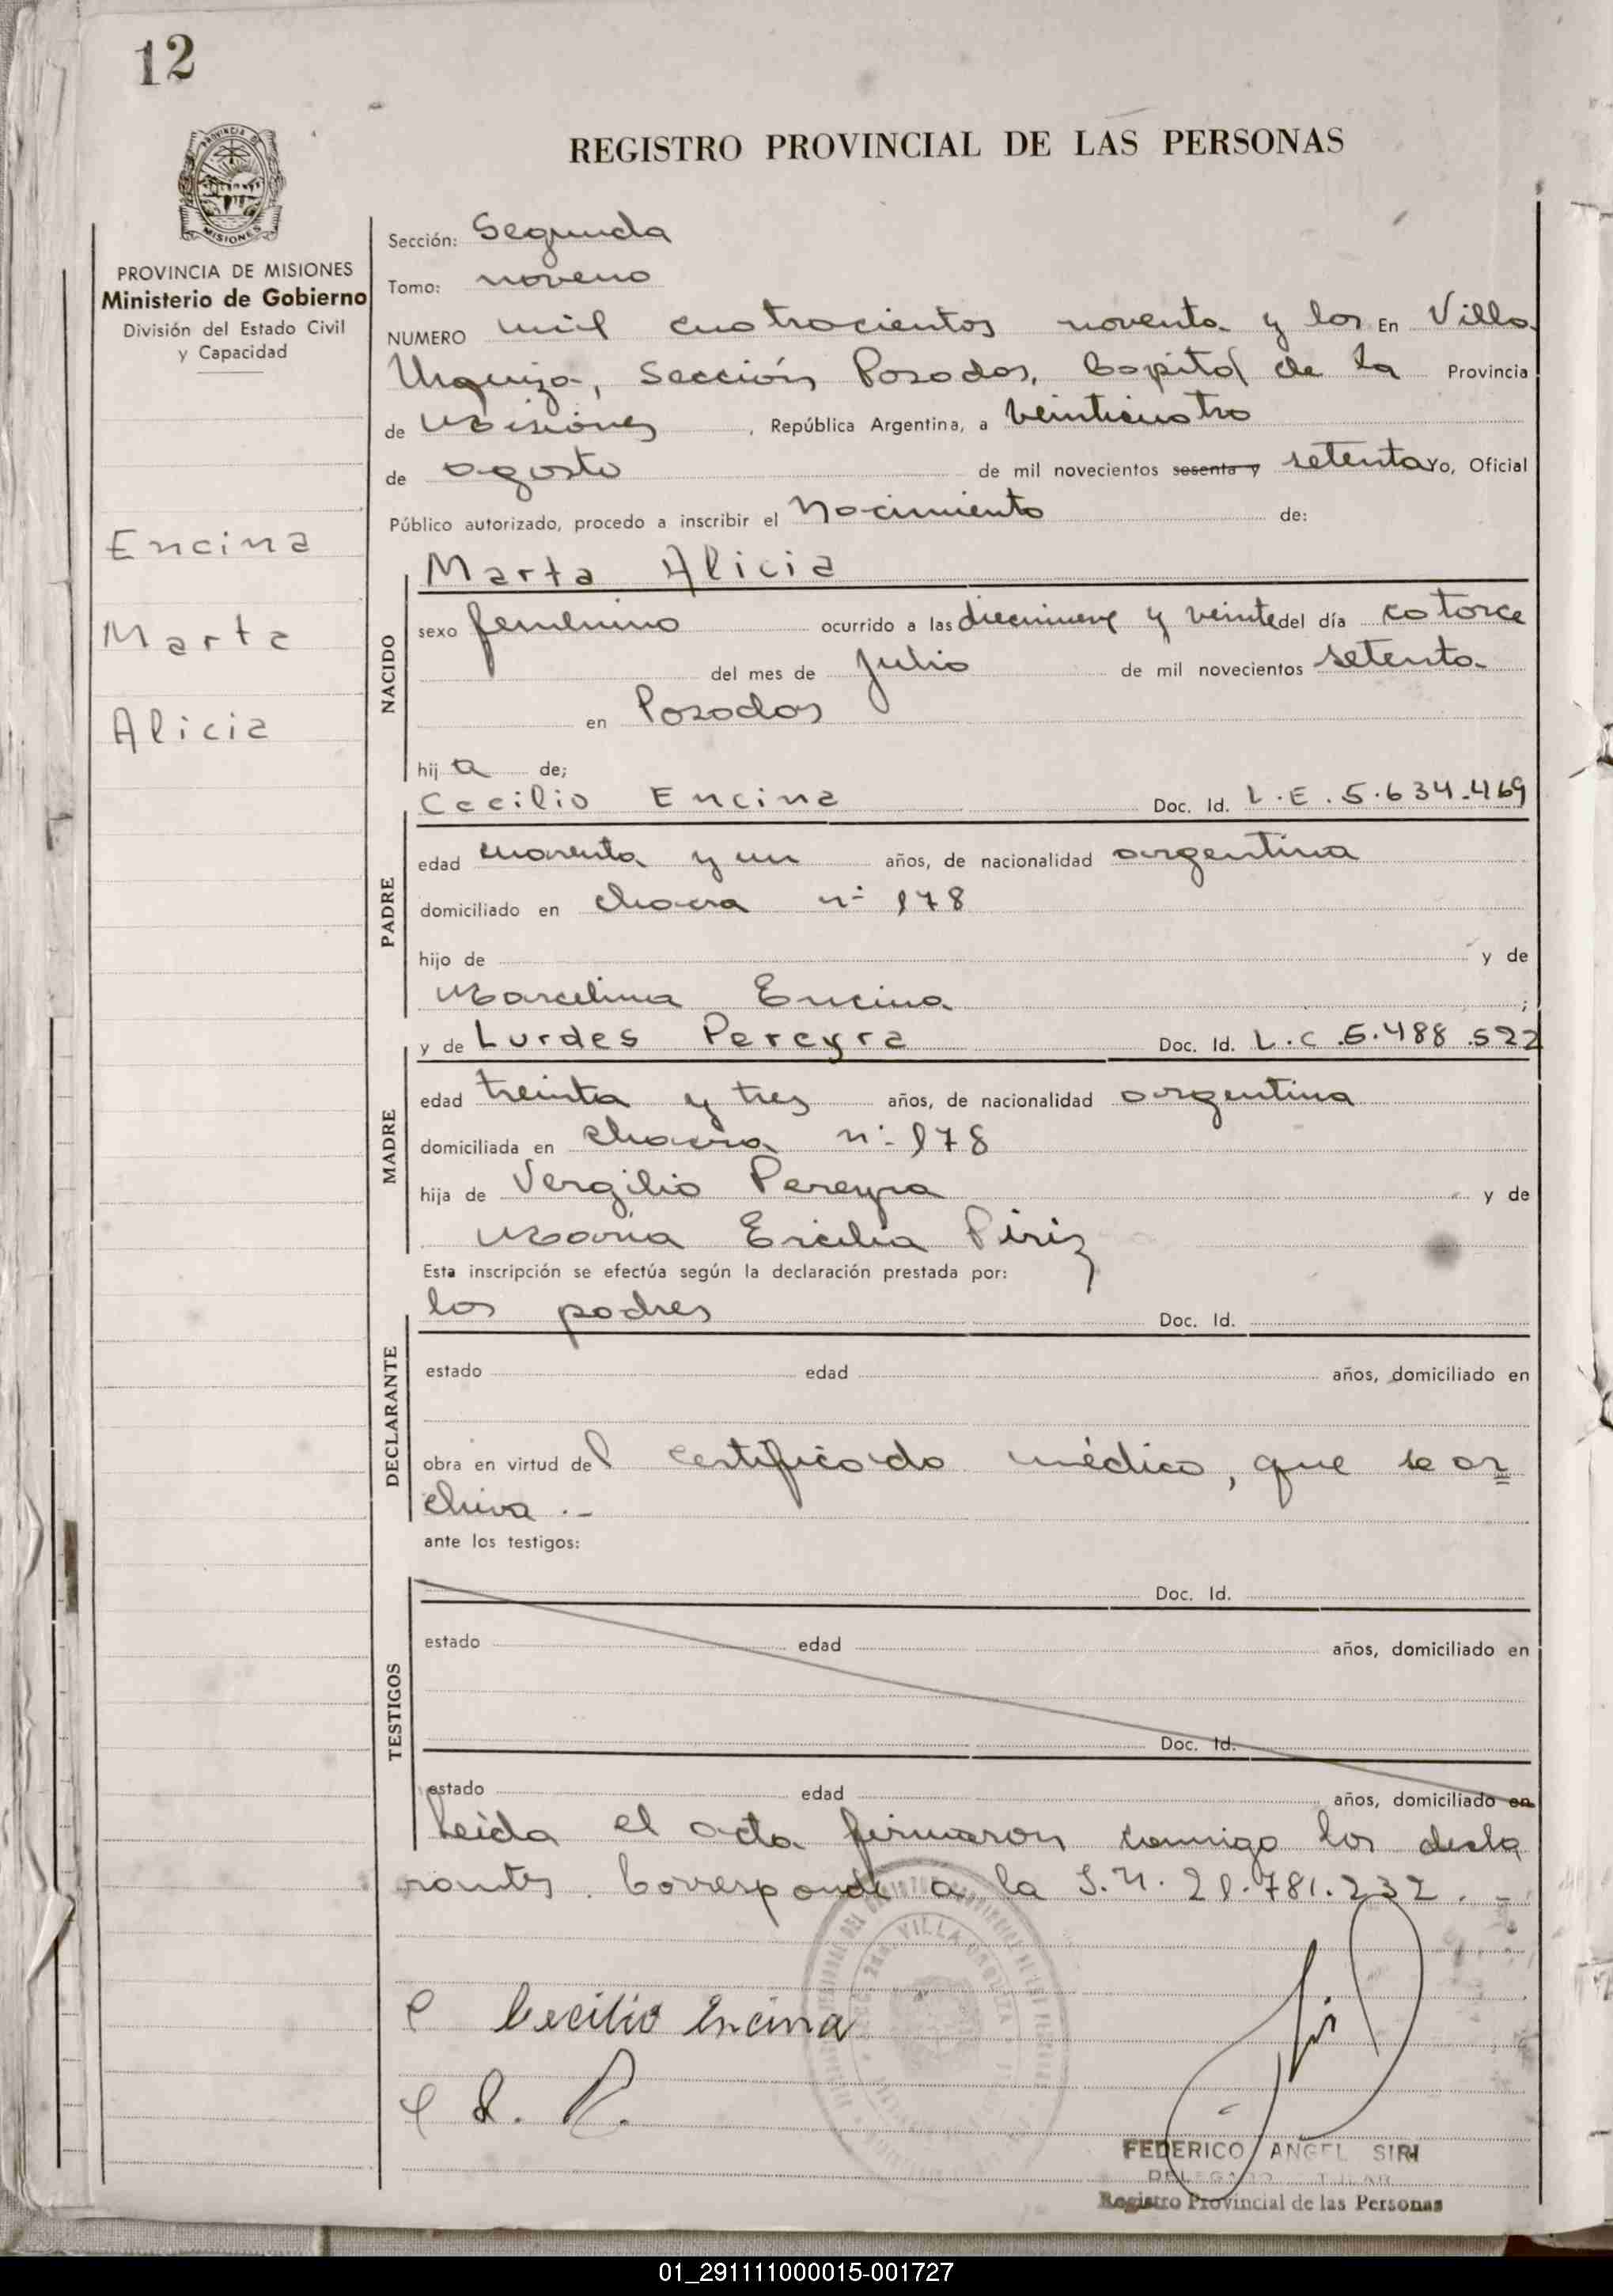 12
PROVINCIA DE
MISIONES
REGISTRO PROVINCIAL DE LAS PERSONAS
PROVINCIA DE MISIONES
Ministerio de Gobierno
División del Estado Civil
y Capacidad
Encina
Marta
Alicia
Sección: Segunda
Tomo: noveno
NUMERO mil cuatrocientos noventa y los En Villa
Urquiza, Sección Posadas, Capital de la Provincia
de Misiones, República Argentina, a veinticuatro
de agosto de mil novecientos sesenta y setenta yo, Oficial
Público autorizado, procedo a inscribir el Nacimiento de:
Marta Alicia
NACIDO
sexo femenino ocurrido a las diecinueve y veinte del día catorce
del mes de Julio de mil novecientos setenta
en Posadas
hij a de;
Cecilio Encina Doc. Id. L.E. 5.634.469
PADRE
edad cuarenta y un años, de nacionalidad argentina
domiciliado en chacra nº 178
hijo de y de
Marcelina Encina ;
y de Lurdes Pereyra Doc. Id. L.C. 5.488.522
MADRE
edad treinta y tres años, de nacionalidad argentina
domiciliada en chacra nº 178
hija de Vergilio Pereyra y de
María Ercilia Piriz
Esta inscripción se efectúa según la declaración prestada por:
los padres Doc. Id.
DECLARANTE
estado edad años, domiciliado en
obra en virtud del certificado médico, que se ar=
chiva .-
ante los testigos:
Doc. Id.
TESTIGOS
estado edad años, domiciliado en
Doc. Id.
estado edad años, domiciliado en
Leida el acta firmaron conmigo los decla
rantes. Corresponde a la 21.781.232. -
Cecilio Encina
P.
FEDERICO ANGEL SIRI
DELEGADO TITULAR
Registro Provincial de las Personas
VILLA URQUIZA
01_291111000015-001727